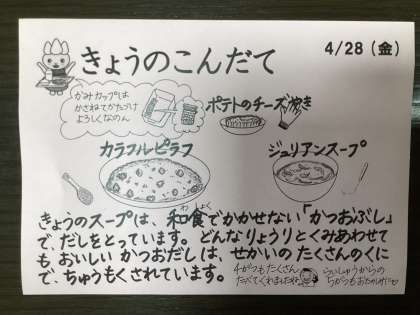 きょうのこんだて
4/28（金）
かみカップは
かさねてかたづけ
よろしくなのん
ポテトのチーズ焼き
カラフルピラフ
ジュリアンスープ
わしょく
きょうのスープは、和食でかかせない「かつおぶし」
で、だしをとっています。どんなりょうりとくみあわせて
も おいしい かつおだしは、せかいの たくさんのくに
で、ちゅうもくされています。
4がつもたくさん
たべてくれましたね
らいしゅうからの
5がつもおたのしみに